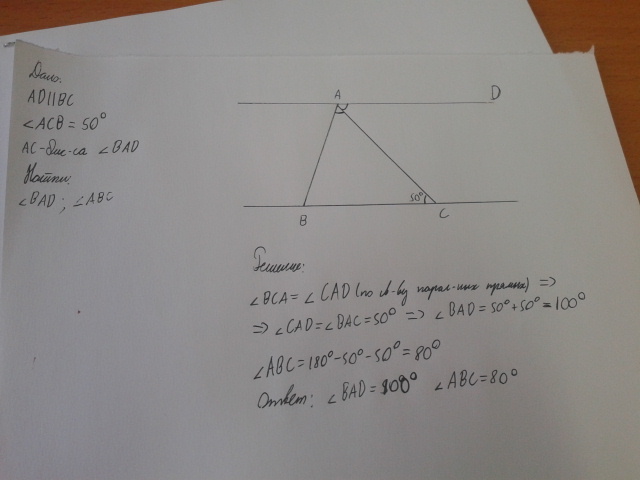 Дано:
AD||BC
∠ACB = 50°
AC - бис-са ∠BAD
Найти:
∠BAD ; ∠ABC
A
D
50°
B
C
Решение:
∠BCA = ∠CAD (по св-ву парал-ных прямых) =>
=> ∠CAD = ∠BAC = 50° => ∠BAD = 50° + 50° = 100°
∠ABC = 180° - 50° - 50° = 80°
Ответ: ∠BAD = 100° ∠ABC = 80°